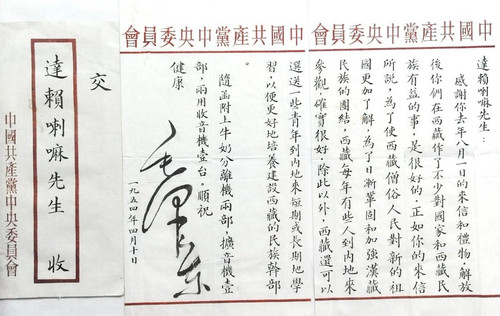 中國共產黨中央委員會
達賴喇嘛先生:
感謝你去年八月一日的來信和禮物,解放
後你們在西藏作了不少對國家和西藏民
族有益的事,是很好的,正如你的來信
所說,為了使西藏僧俗人民對新的祖
國更加了解,為了日漸鞏固和加強漢藏
民族的團結,西藏每年有些人到內地來
參觀,確實很好,除此以外,西藏還可以
中國共產黨中央委員會
選送一些青年到內地來短期或長期地學
習,以便更好地培養建設西藏的民族幹部
隨函附上牛奶分離機兩部,擴音機壹
部,兩用收音機壹台,順祝
健康
毛澤東
一九五四年四月十日
交
達賴喇嘛先生 收
中國共產黨中央委員會